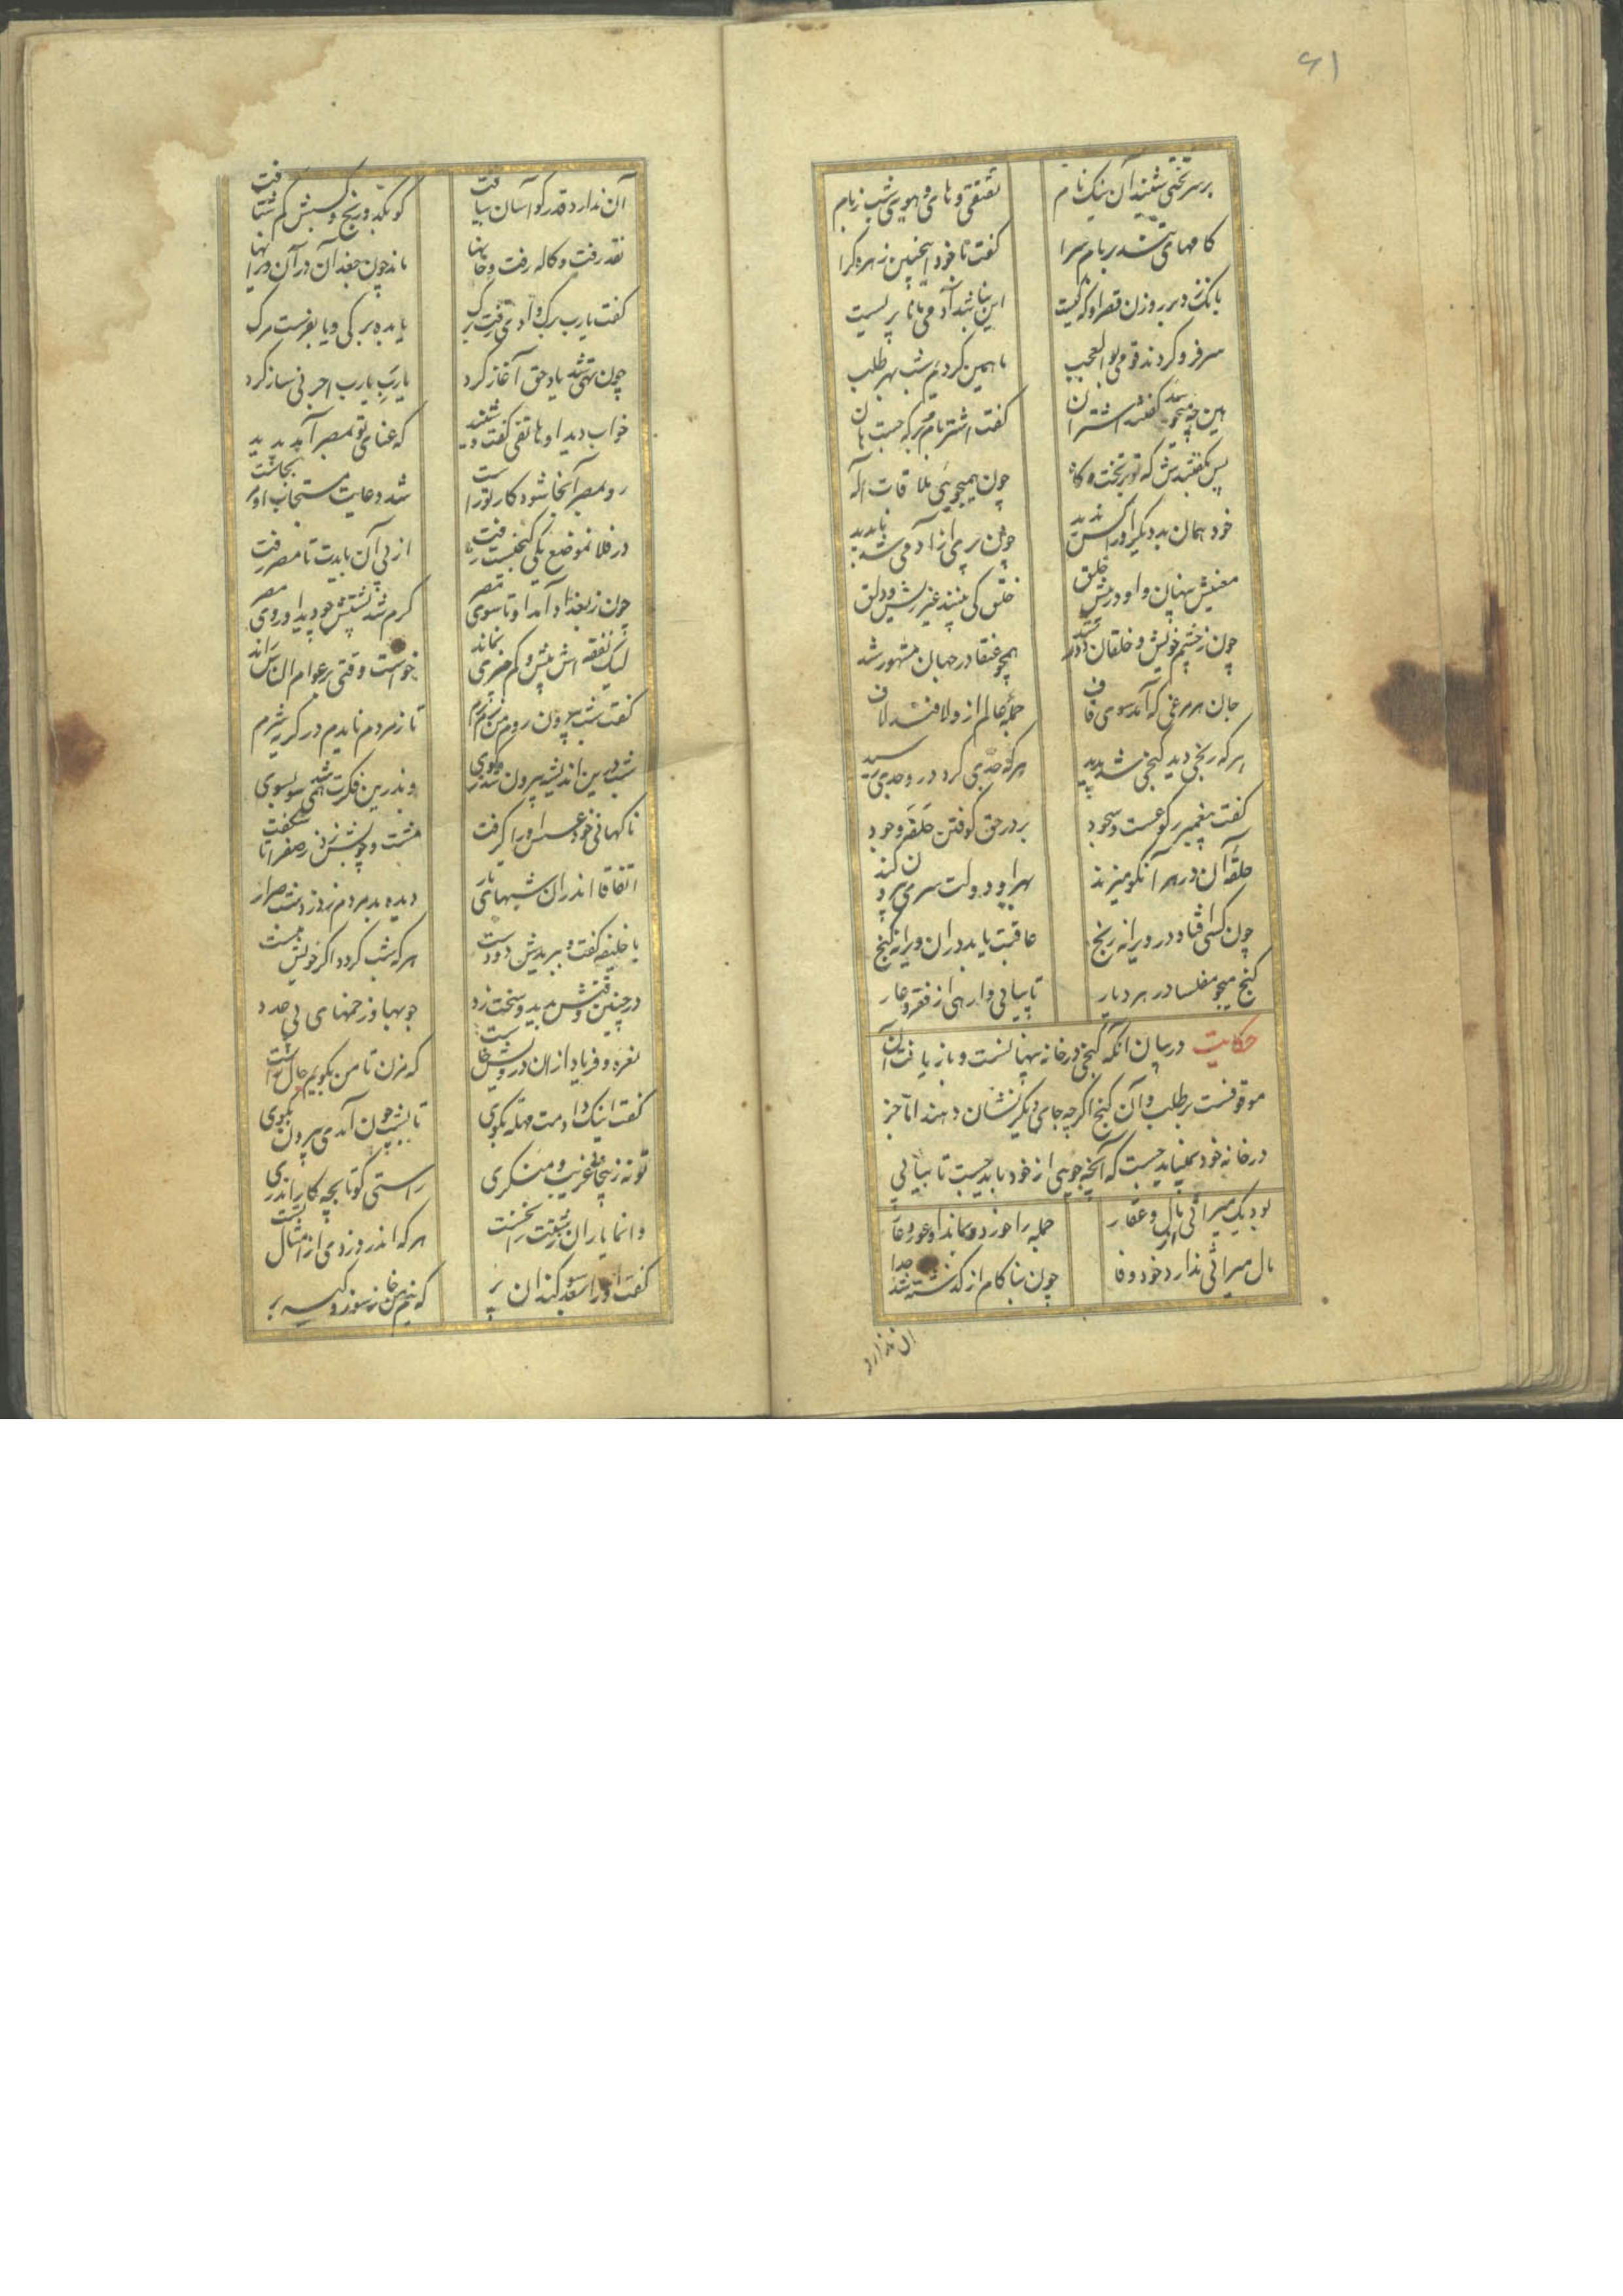 ۶۱
بر سر تختی شنید آن نیک نام
تقتقی و های و هویی شب ز بام
کامهای تند بر بام سرا
کفت با خود اینچنین زهره کرا
بانک زد بر روزن قصر او که کیست
این نباشد آدمی مانا پریست
سر فرو کردند قومی بو العجب
ما همی کردیم شب بهر طلب
هین چه میجویید کفتند اشتران
کفت اشتر بام بر که جست هان
پس بکفتندش که تو بر تخت و کاه
چون همیجویی ملاقات اله
خود همان بد دیکر او را کس ندید
چون پری از آدمی شد ناپدید
معنیش پنهان و او در پیش خلق
خلق کی بینند غیر ریش و دلق
چون ز چشم خویش و خلقان دور شد
همچو عنقا در جهان مشهور شد
جان هر مرغی که آمد سوی قاف
جمله عالم ازو لافند لاف
هر که رنجی دید کنجی شد پدید
هر که جدی کرد در جدی رسید
کفت پیغمبر رکوعست و سجود
بر در حق کوفتن حلقه وجود
حلقه آن در هر آنکو میزند
بهر او دولت سری بیرون کند
چون کسی افتاد در ویرانه رنج
عاقبت یابد در ان ویرانه کنج
کنج میجو مفلسا در هر دیار
تا بیابی وارهی از فقر و عار
حکایت در بیان آنکه کنجی در خانه پنهانست و باز یافت آن
موقوفست بر طلب و آن کنج اکر چه جای دیکر نشان دهند اما جز
در خانه خود نمیباید جست که آنچه جویی از خود باید جست تا بیابی
بود یک میراثی مال و عقار
جمله را خورد و بماند او عور و زار
مال میراثی ندارد خود وفا
چون بناکام از کذشته شد جدا
ان ندارد
آن ندارد قدر کو آسان بیافت
کو بکد و رنج و کسبش کم شتافت
نقد رفت و کاله رفت و خانها
ماند چون جغدان در آن ویرانها
کفت یارب برک دادی رفت برک
یا بده برکی و یا بفرست مرک
چون تهی شد یاد حق آغاز کرد
یارب یارب اجرنی ساز کرد
خواب دید او هاتفی کفت و شنید
که غنای تو بمصر آید پدید
رو بمصر آنجا شود کار تو راست
شد دعایت مستجاب او مرتجاست
در فلان موضع یکی کنجیست زفت
از پی آن بایدت تا مصر رفت
چون ز بغداد آمد او تا سوی مصر
کرم شد پشتش چو دید او روی مصر
لیک نفقه اش بیش و کم چیزی نماند
خواست وقتی بر عوام الناس راند
کفت شب بیرون روم من نرم نرم
تا ز مردم نایدم در کریه شرم
شب درین اندیشه بیرون شد بکوی
وندرین فکرت همی شد سو بسوی
ناکهانی خود عسس او را کرفت
مشت و چوبش زد ز صفرا ناشکفت
اتفاقا اندران شبهای تار
دیده بد مردم ز دزدشب ضرار
تا خلیفه کفت و ببریدش دو دست
هر که شب کردد اکر خویش منست
در چنین وقتش بدید و سخت زد
چوبها و زخمهای بی عدد
نعره و فریاد از ان درویش خاست
که مزن تا من بکویم حال راست
کفت اینک دادمت مهلت بکوی
تا بشب چون آمدی بیرون بکوی
تو نه زینجایی غریب و منکری
راستی کو تا بچه کار اندری
وانما یاران زشتت را نخست
هر که اندر دزدی از امثال تست
کفت او را سوکندان پر
که نیم من خانه سوز و کیسه بر